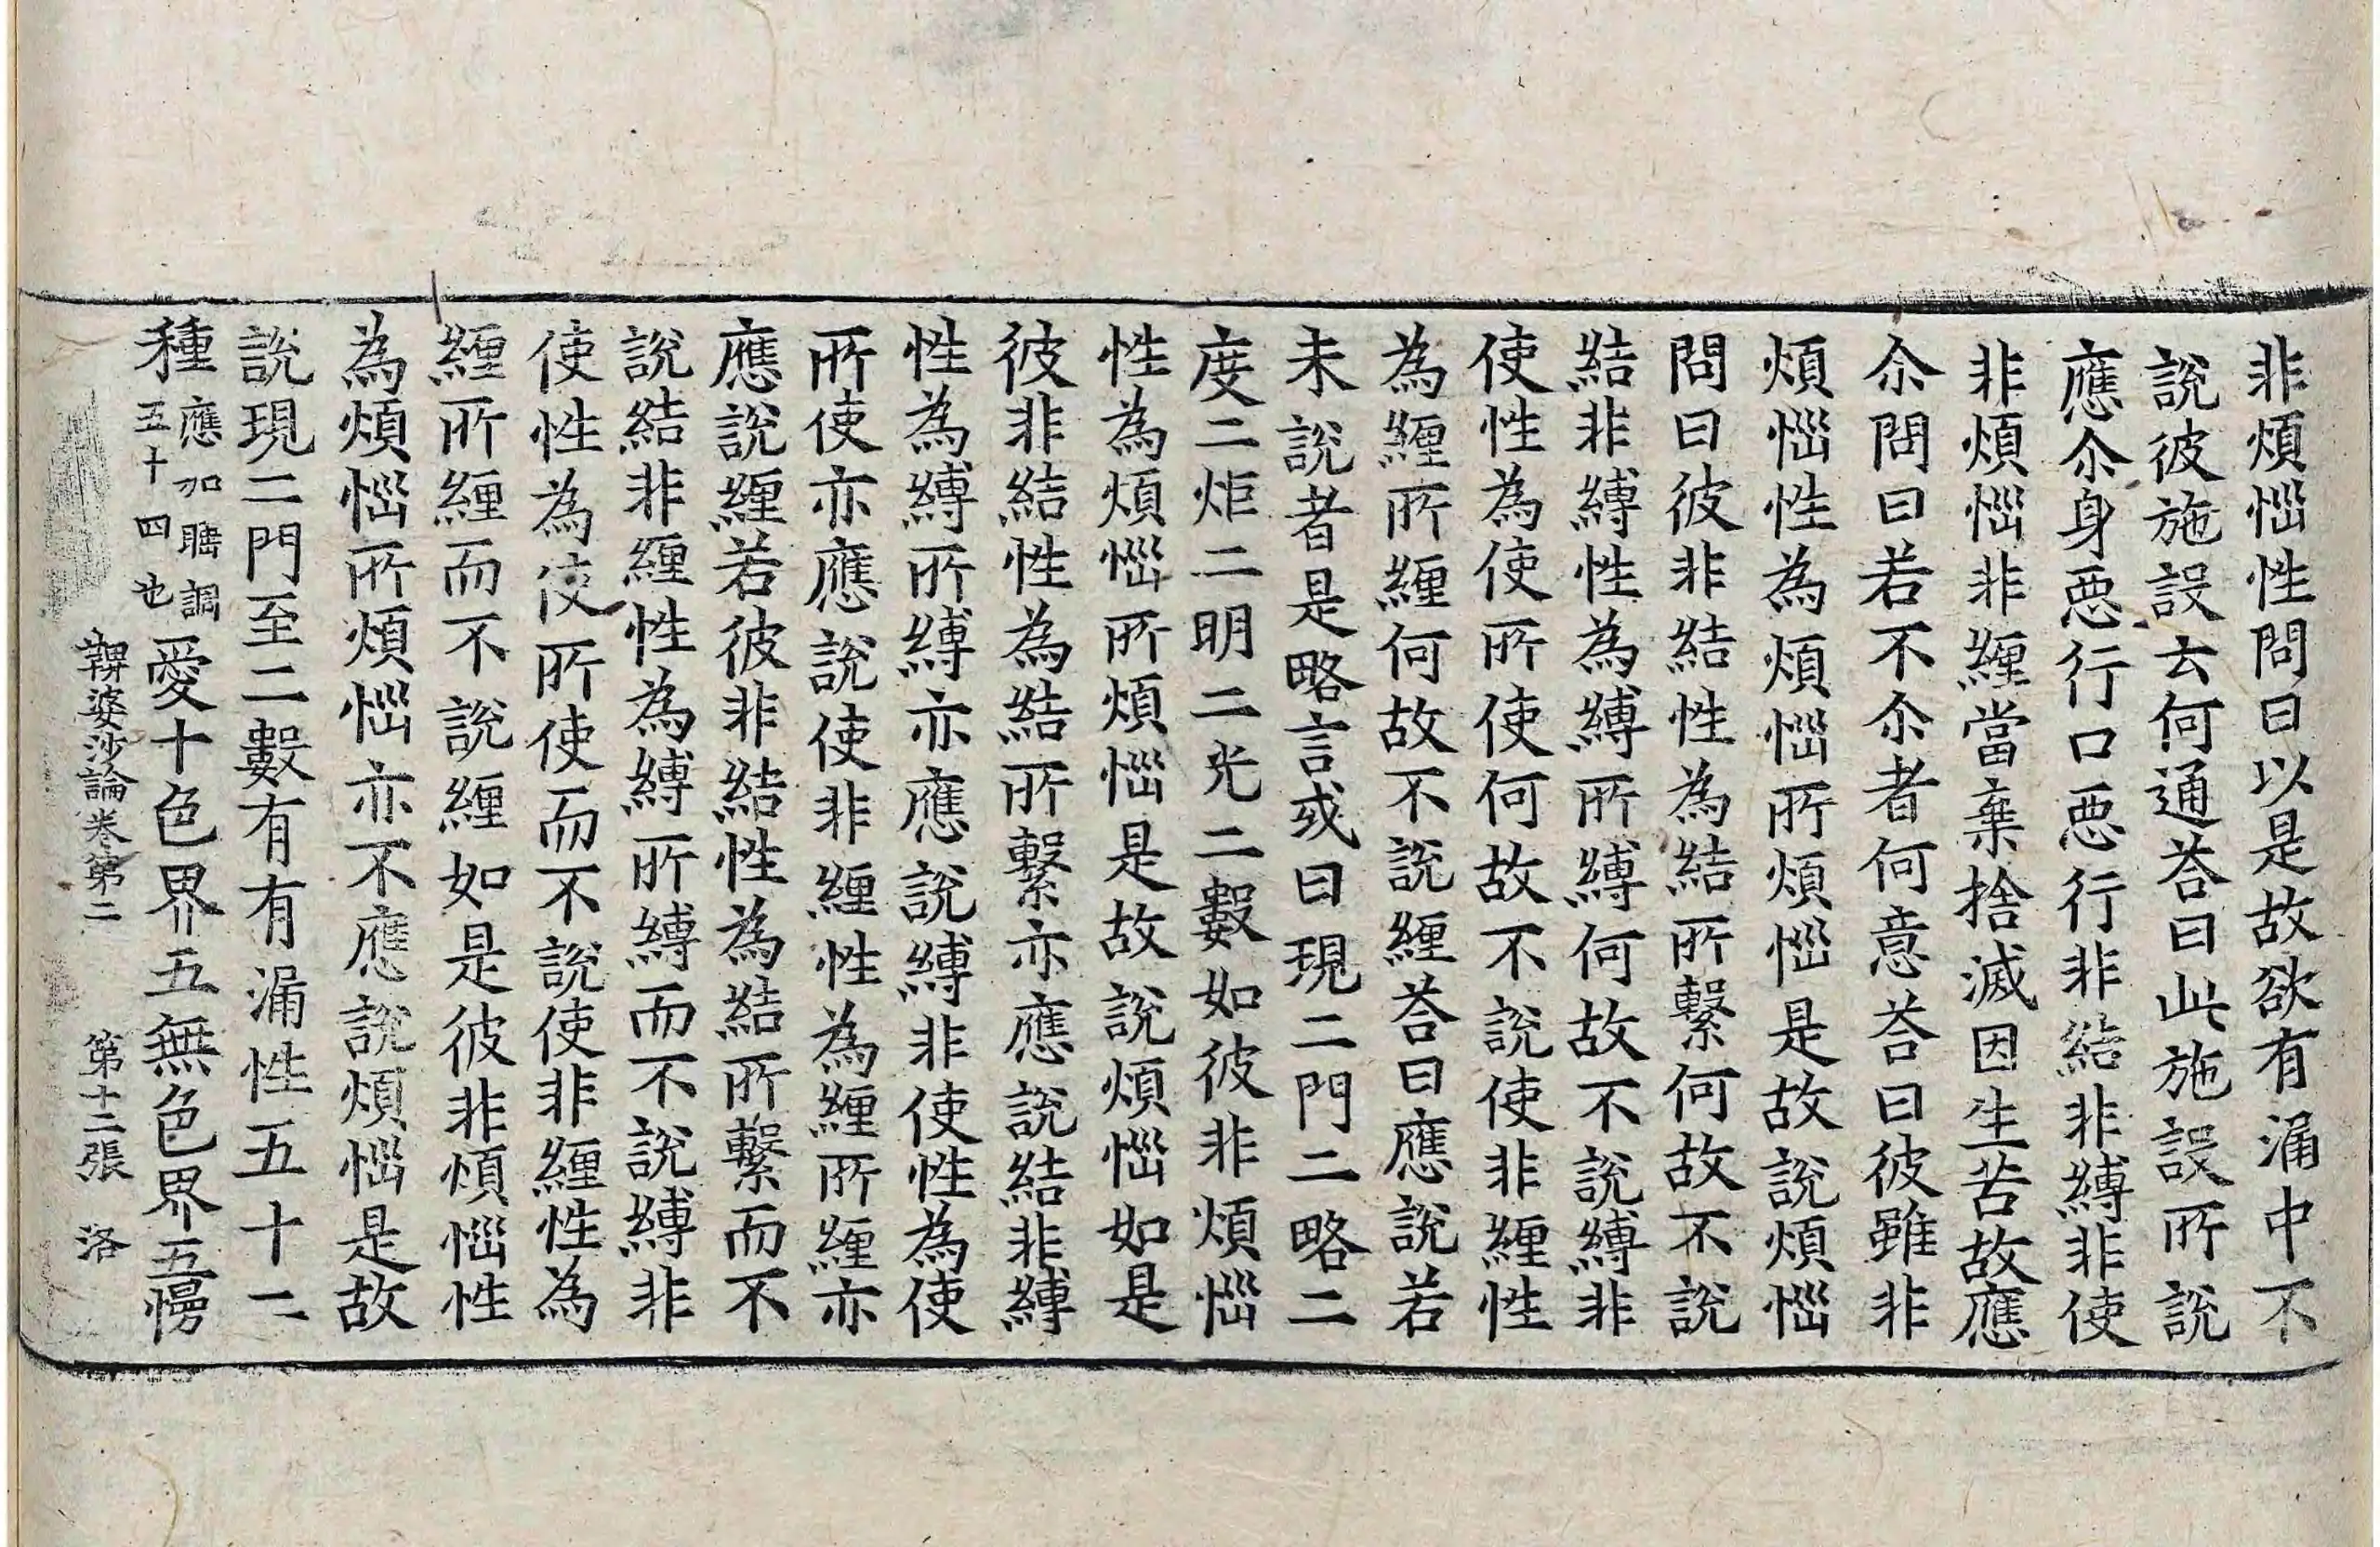 非煩惱性問曰以是故欲有漏中不
說彼施設云何通荅曰此施設所說
應尒身惡行口惡行非結非縛非使
非煩惱非纏當棄捨滅因生苦故應
尒問曰若不尒者何意荅曰彼雖非
煩惱性為煩惱所煩惱是故說煩惱
問曰彼非結性為結所繫何故不說
結非縛性為縛所縛何故不說縛非
使性為使所使何故不說使非纏性
為纏所纏何故不說纏荅曰應說若
未說者是略言或曰現二門二略二
度二炬二明二光二數如彼非煩惱
性為煩惱所煩惱是故說煩惱如是
彼非結性為結所繫亦應說結非縛
性為縛所縛亦應說縛非使性為使
所使亦應說使非纏性為纏所纏亦
應說纏若彼非結性為結所繫而不
說結非纏性為縛所縛而不說縛非
使性為使所使而不說使非纏性為
纏所纏而不說纏如是彼非煩惱性
為煩惱所煩惱亦不應說煩惱是故
說現二門至二數有有漏性五十二
種應加睡調五十四也愛十色界五無色界五慢
鞞婆沙論卷第二 第十二張 洛